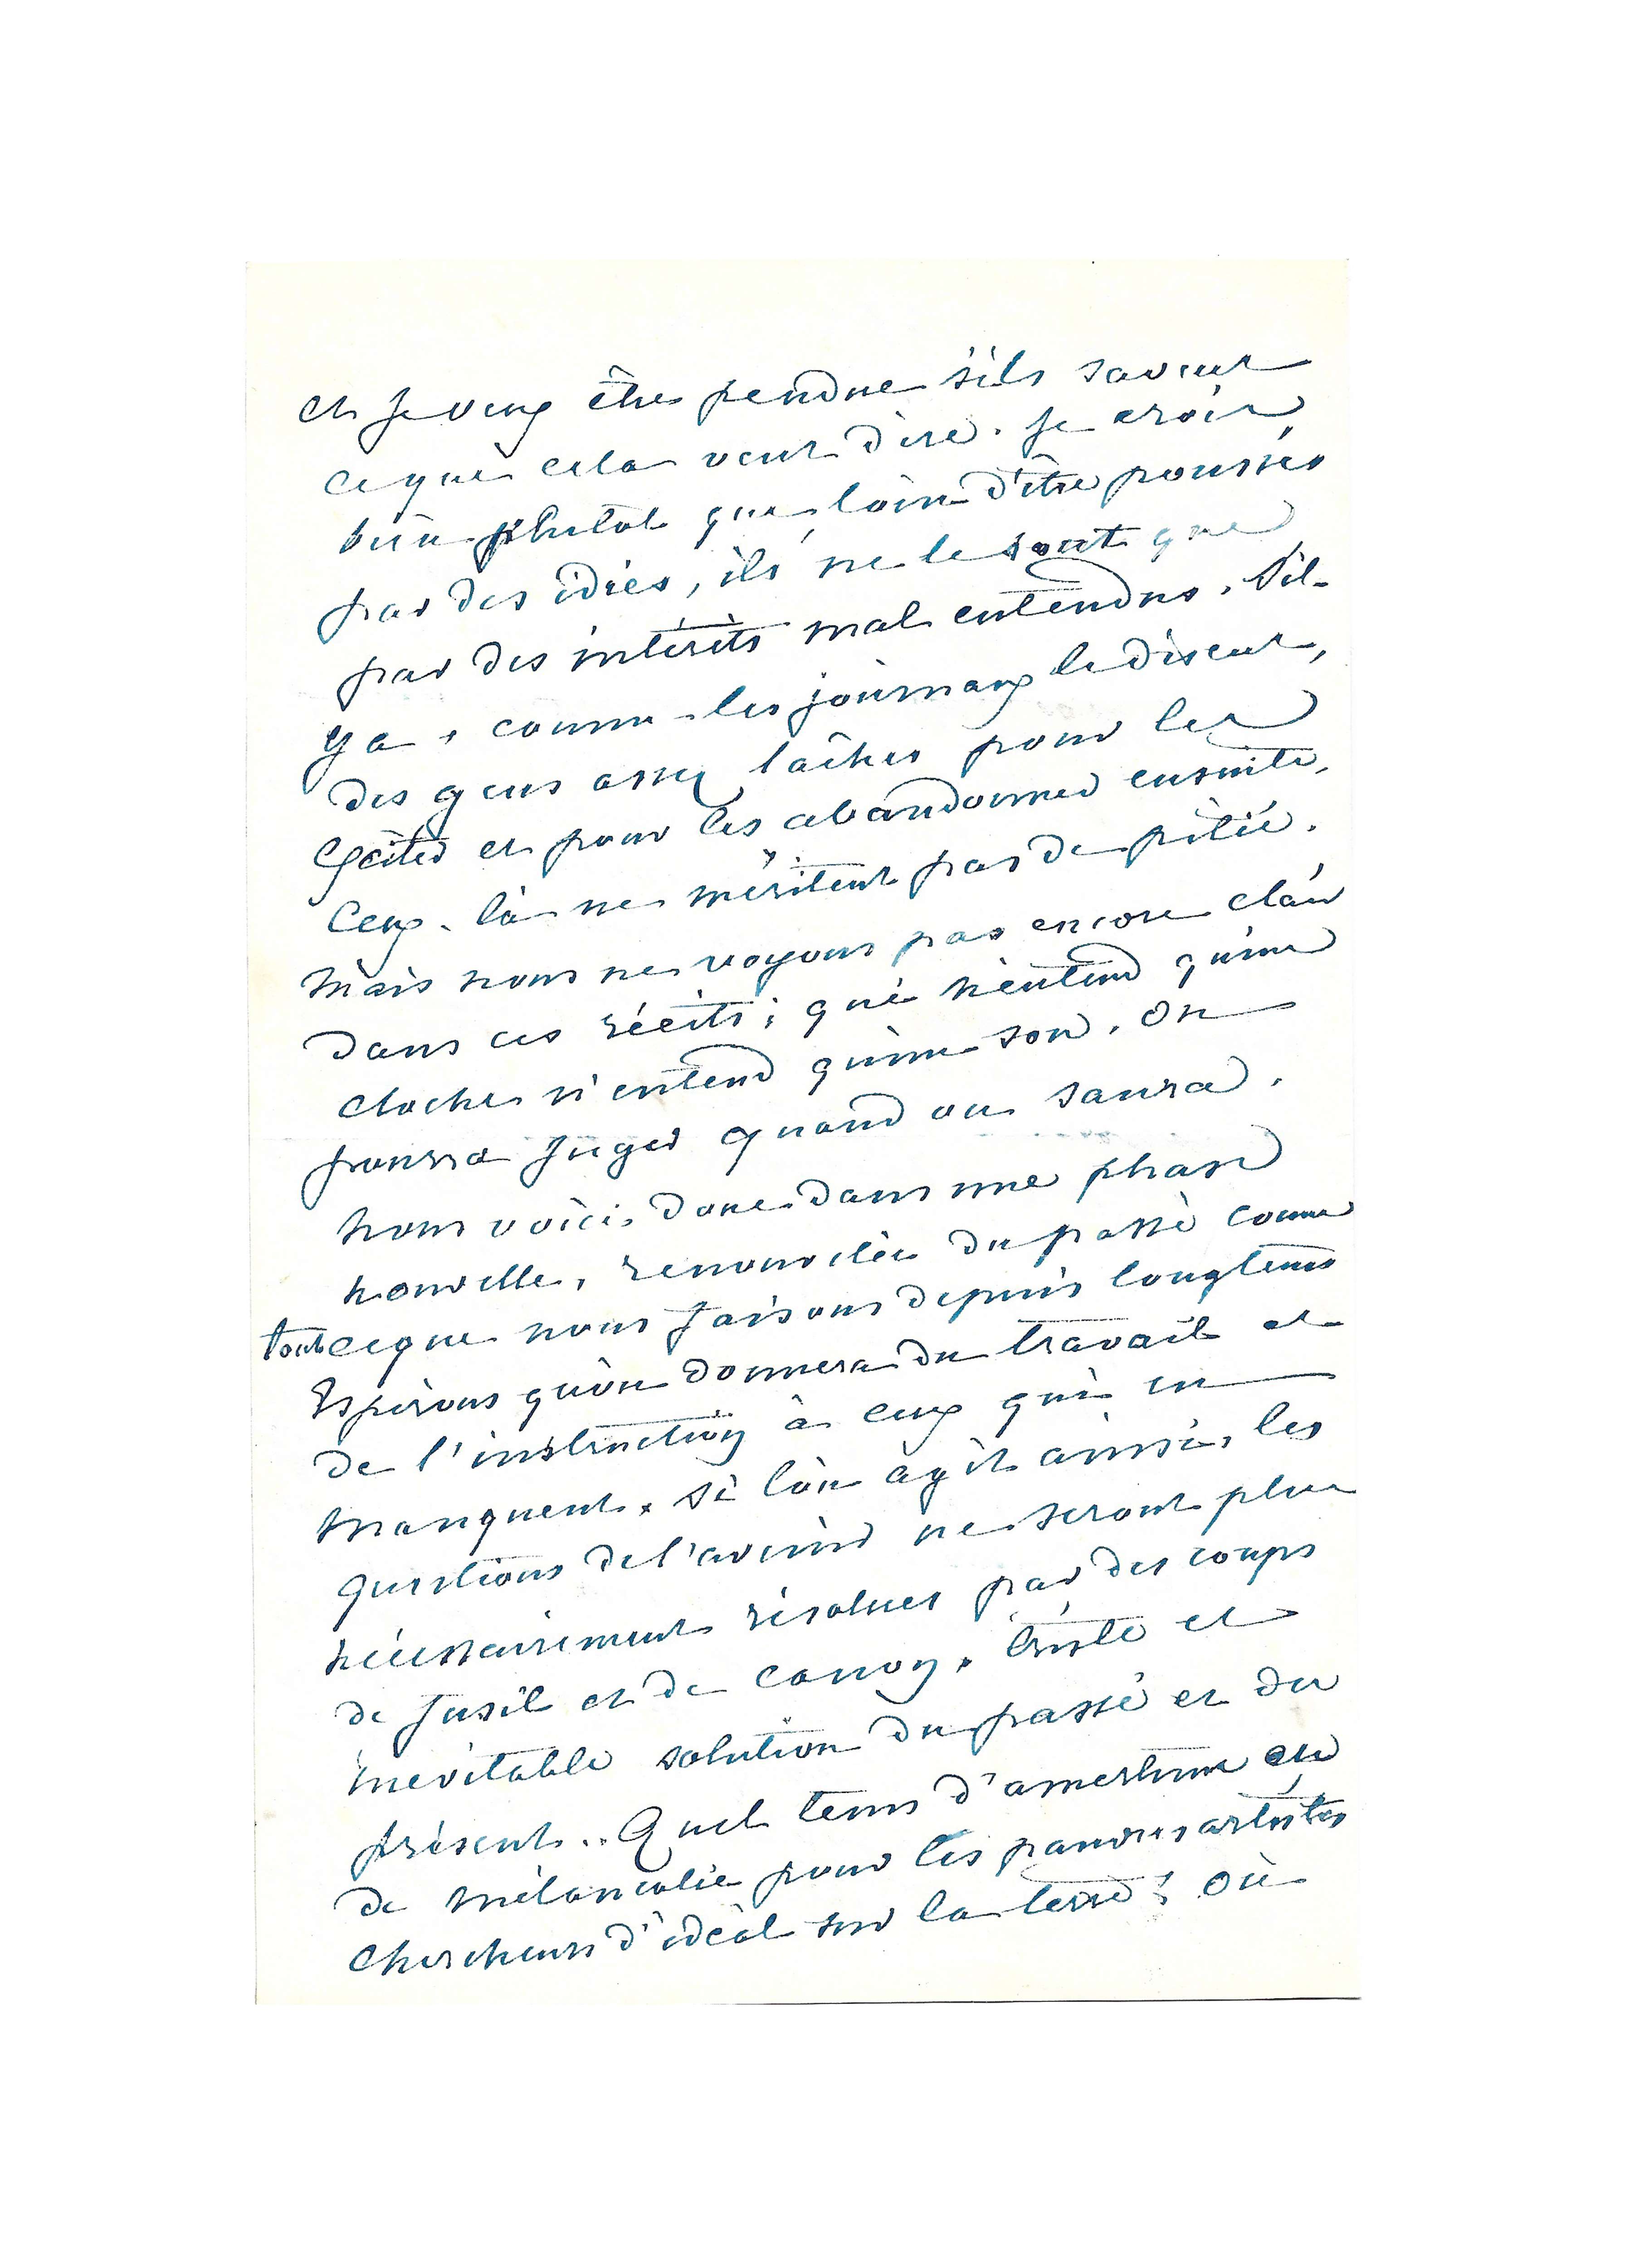 et je veux être pendue s'ils savent
ce que cela veut dire. Je crois
bien plutot que, loin d'être poussés
par des idées, ils ne le sont que
par des intérêts mal entendus. S'il
y a, comme les journaux le disent,
des gens assez lâches pour les
exciter et pour les abandonner ensuite,
Ceux-là ne méritent pas de pitié.
Mais nous ne voyons pas encore clair
dans ces récits; qui n'entend qu'une
cloche n'entend qu'un son. On
pourra juger quand on saura.
Nous voici donc dans une phase
nouvelle, renouvelée du passé comme
tout ce que nous faisons depuis longtems
Espérons qu'on donnera du travail et
de l'instruction à ceux qui en
manquent. Si l'on agit ainsi, les
questions de l'avenir ne seront plus
nécessairement résolues par des coups
de fusil et de canon. triste et
inévitable solution du passé et du
présent.. Quel tems d'amertume et
de mélancolie pour les pauvres artistes
chercheurs d'idéal sur la terre! Où